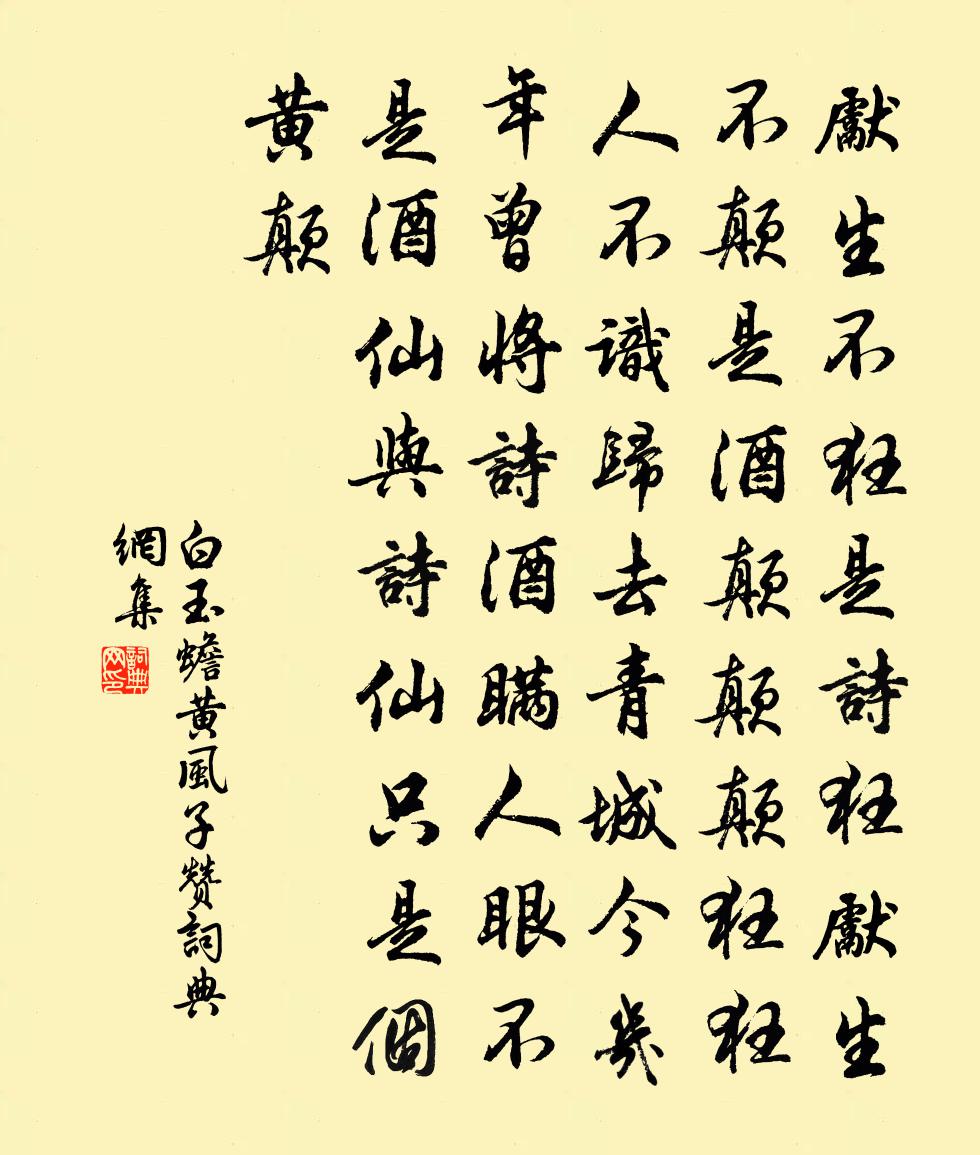 獻生不狂是詩狂獻生
不顛是酒顛顛顛狂狂
人不識歸去青城今幾
年曾將詩酒瞞人眼不
是酒仙與詩仙只是個
黃顛
白玉蟾黃風子贊詞典
網集
詞典網印